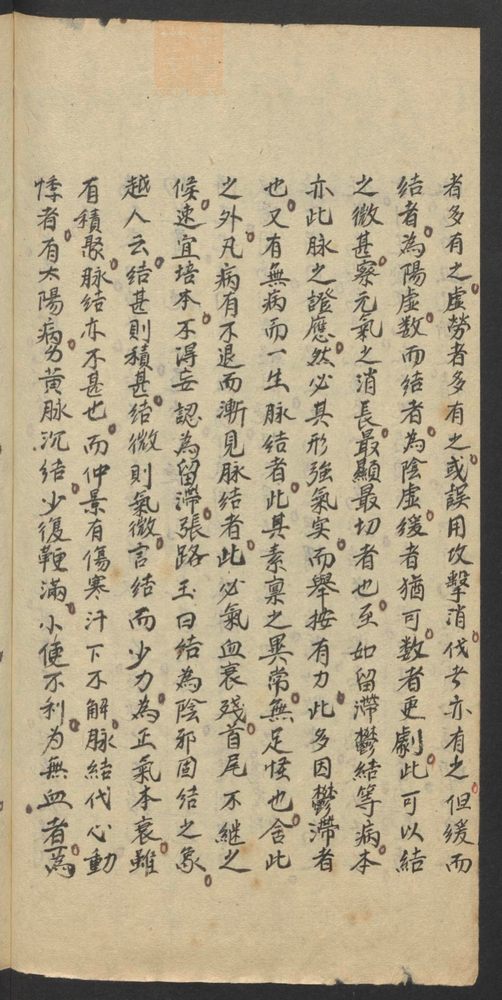 者多有之虛勞者多有之或誤用攻擊消伐者亦有之但緩而
結者為陽虛数而結者為陰虛緩者猶可数者更劇此可以結
之微甚察元氣之消長最顯最切者也至如留滯鬱結等病本
亦此脉之證應然必其形強氣实而舉按有力此多因鬱滯者
也又有無病而一生脉結者此其素稟之異常無足怪也舍此
之外凡病有不退而漸見脉結者此必氣血衰殘首尾不繼之
候速宜培本不得妄認為留滯張路玉曰結為陰邪固結之象
越人云結甚則積甚結微則氣微言結而少力為正氣本衰雖
有積聚脉結亦不甚也而仲景有傷寒汗下不解脉結代心動
悸者有太陽病身黄脉沉結少復鞕滿小便不利为無血者為